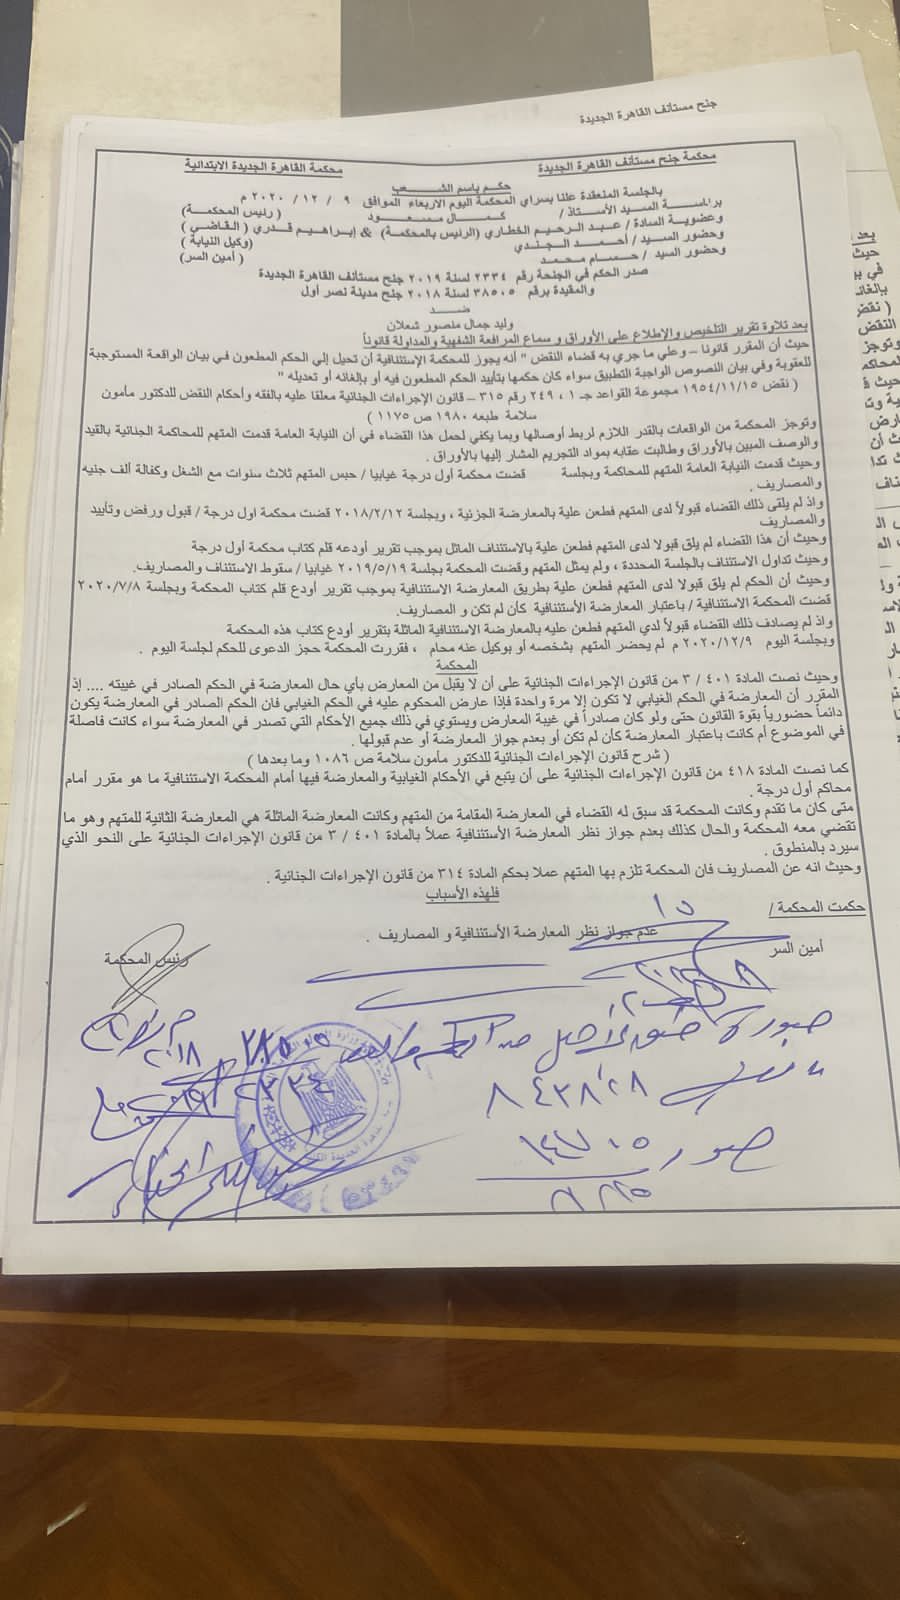 جنح مستأنف القاهرة الجديدة
محكمة جنح مستأنف القاهرة الجديدة
محكمة القاهرة الجديدة الابتدائية
حكم باسم الشعب
بالجلسة المنعقدة علنا بسراي المحكمة اليوم الاربعاء الموافق ٩ / ١٢ / ٢٠٢٠ م
برئاسة السيد الأستاذ / كمال مسعود ( رئيس المحكمة)
وعضوية السادة / عبد الرحيم الخطاري (الرئيس بالمحكمة) & إبراهيم قدري ( القاضي )
وحضور السيد / أحمد الجندي (وكيل النيابة )
وحضور السيد / حسام محمد ( أمين السر)
صدر الحكم في الجنحة رقم ٢٣٣٤ لسنة ٢٠١٩ جنح مستأنف القاهرة الجديدة
والمقيدة برقم ٣٨٥٠٥ لسنة ٢٠١٨ جنح مدينة نصر أول
ضد
وليد جمال منصور شعلان
بعد تلاوة تقرير التلخيص والإطلاع على الأوراق و سماع المرافعة الشفهية والمداولة قانوناً
حيث أن المقرر قانونا – وعلي ما جري به قضاء النقض " أنه يجوز للمحكمة الإستئنافية أن تحيل إلي الحكم المطعون في بيان الواقعة المستوجبة
للعقوبة وفي بيان النصوص الواجبة التطبيق سواء كان حكمها بتأييد الحكم المطعون فيه أو بإلغائه أو تعديله "
( نقض ١٩٥٤/١١/١٥ مجموعة القواعد جـ ١ ، ٢٤٩ رقم ٣١٥ – قانون الإجراءات الجنائية معلقا عليه بالفقه وأحكام النقض للدكتور مأمون
سلامة طبعه ١٩٨٠ ص ١١٧٥ )
وتوجز المحكمة من الواقعات بالقدر اللازم لربط أوصالها وبما يكفي لحمل هذا القضاء في أن النيابة العامة قدمت المتهم للمحاكمة الجنائية بالقيد
والوصف المبين بالأوراق وطالبت عقابه بمواد التجريم المشار إليها بالأوراق .
وحيث قدمت النيابة العامة المتهم للمحاكمة وبجلسة قضت محكمة أول درجة غيابيا / حبس المتهم ثلاث سنوات مع الشغل وكفالة ألف جنيه
والمصاريف .
واذ لم يلقى ذلك القضاء قبولاً لدى المتهم فطعن علية بالمعارضة الجزئية ، وبجلسة ٢٠١٨/٢/١٢ قضت محكمة اول درجة / قبول ورفض وتأييد
والمصاريف
وحيث أن هذا القضاء لم يلق قبولا لدى المتهم فطعن علية بالاستئناف الماثل بموجب تقرير أودعه قلم كتاب محكمة أول درجة
وحيث تداول الاستئناف بالجلسة المحددة ، ولم يمثل المتهم وقضت المحكمة بجلسة ٢٠١٩/٥/١٩ غيابيا / سقوط الاستئناف والمصاريف.
وحيث أن الحكم لم يلق قبولا لدى المتهم فطعن علية بطريق المعارضة الاستئنافية بموجب تقرير أودع قلم كتاب المحكمة وبجلسة ٢٠٢٠/٧/٨
قضت المحكمة الاستئنافية / باعتبار المعارضة الأستئنافية كأن لم تكن و المصاريف.
واذ لم يصادف ذلك القضاء قبولاً لدي المتهم فطعن عليه بالمعارضة الاستئنافية الماثلة بتقرير أودع كتاب هذه المحكمة
وبجلسة اليوم ٢٠٢٠/١٢/٩ م لم يحضر المتهم بشخصه أو بوكيل عنه محام ، فقررت المحكمة حجز الدعوى للحكم لجلسة اليوم .
المحكمة
وحيث نصت المادة ٤٠١ / ٣ من قانون الإجراءات الجنائية على أن لا يقبل من المعارض بأي حال المعارضة في الحكم الصادر في غيبته .... إذ
المقرر أن المعارضة في الحكم الغيابي لا تكون إلا مرة واحدة فإذا عارض المحكوم عليه في الحكم الغيابي فان الحكم الصادر في المعارضة يكون
دائماً حضورياً بقوة القانون حتى ولو كان صادراً في غيبة المعارض ويستوي في ذلك جميع الأحكام التي تصدر في المعارضة سواء كانت فاصلة
في الموضوع أم كانت باعتبار المعارضة كأن لم تكن أو بعدم جواز المعارضة أو عدم قبولها .
( شرح قانون الإجراءات الجنائية للدكتور مأمون سلامة ص ١٠٨٦ وما بعدها )
كما نصت المادة ٤١٨ من قانون الإجراءات الجنائية على أن يتبع في الأحكام الغيابية والمعارضة فيها أمام المحكمة الاستئنافية ما هو مقرر أمام
محاكم أول درجة .
متى كان ما تقدم وكانت المحكمة قد سبق له القضاء في المعارضة المقامة من المتهم وكانت المعارضة الماثلة هي المعارضة الثانية للمتهم وهو ما
تقضي معه المحكمة والحال كذلك بعدم جواز نظر المعارضة الأستئنافية عملاً بالمادة ٤٠١ / ٣ من قانون الإجراءات الجنائية على النحو الذي
سيرد بالمنطوق .
وحيث انه عن المصاريف فان المحكمة تلزم بها المتهم عملا بحكم المادة ٣١٤ من قانون الإجراءات الجنائية .
فلهذه الأسباب
حكمت المحكمة /
عدم جواز نظر المعارضة الأستئنافية و المصاريف .
أمين السر
رئيس المحكمة